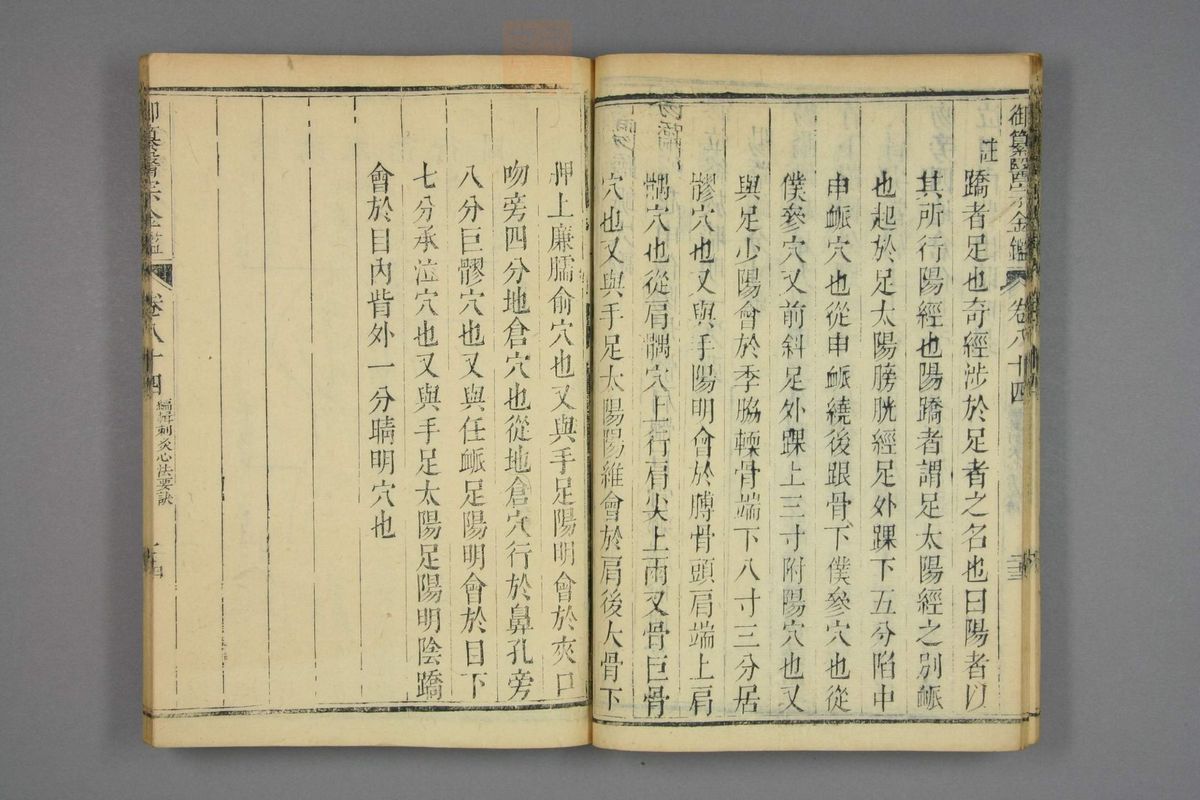 御纂醫宗金鑑
卷八十四
註
蹻者足也奇經涉於足者之名也曰陽者以
其所行陽經也陽蹻者謂足太陽經之別衇
也起於足太陽膀胱經足外踝下五分陷中
申衇穴也從申衇繞後跟骨下僕參穴也從
僕參穴又前斜足外踝上三寸附陽穴也又
與足少陽會於季脇輭骨端下八寸三分居
髎穴也又與手陽明會於膊骨頭肩端上肩
髃穴也從肩髃穴上行肩尖上兩叉骨巨骨
穴也又與手足太陽陽維會於肩後大骨下
胛上廉臑俞穴也又與手足陽明會於夾口
吻旁四分地倉穴也從地倉穴行於鼻孔旁
八分巨髎穴也又與任衇足陽明會於目下
七分承泣穴也又與手足太陽足陽明陰蹻
會於目內眥外一分睛明穴也
御纂醫宗金鑑
卷八十四
編輯刺灸心法要訣